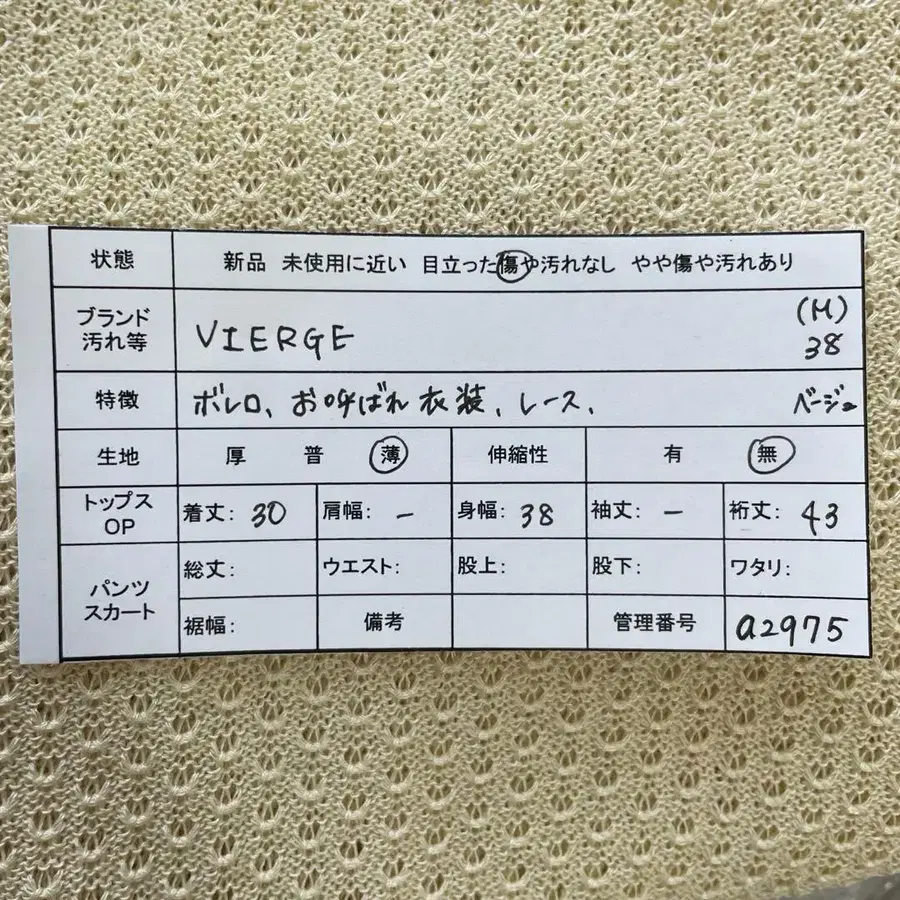 状態 新品 未使用に近い 目立った傷や汚れなし やや傷や汚れあり
ブランド 汚れ等 VIERGE (M) 38
特徴 ボレロ、お呼ばれ衣装、レース、 ベージュ
生地 厚 普 薄 伸縮性 有 無
トップス OP 着丈: 30 肩幅: - 身幅: 38 袖丈: - 裄丈: 43
パンツ スカート 総丈: ウエスト: 股上: 股下: ワタリ:
裾幅: 備考 管理番号 a2975